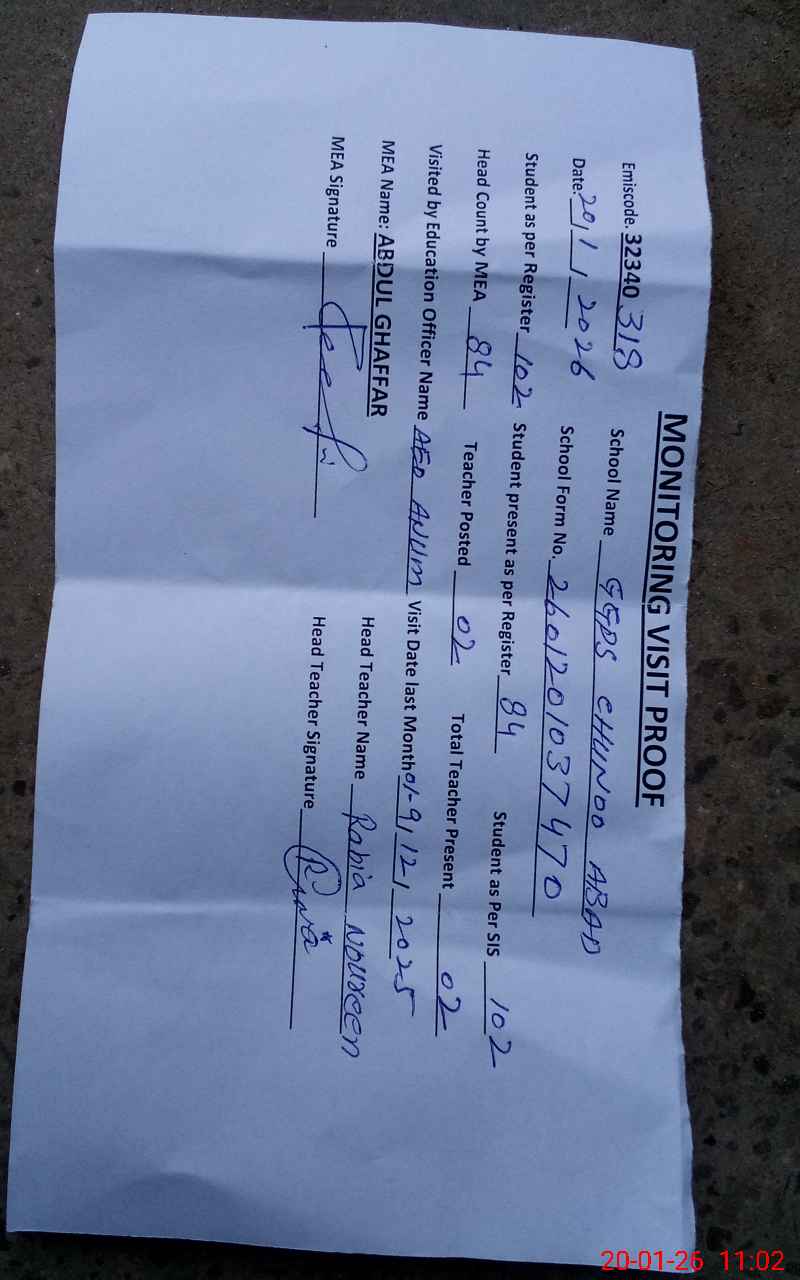 MONITORING VISIT PROOF
Emiscode. 32340 318 School Name GGPS CHUNOO ABAD
Date: 20/1/2026 School Form No. 2601201037470
Student as per Register 102 Student present as per Register 84 Student as Per SIS 102
Head Count by MEA 84 Teacher Posted 02 Total Teacher Present 02
Visited by Education Officer Name AEO ANUM Visit Date last Month 01-9/12/2025
MEA Name: ABDUL GHAFFAR Head Teacher Name Rabia Noureen
MEA Signature Head Teacher Signature
20-01-26 11:02